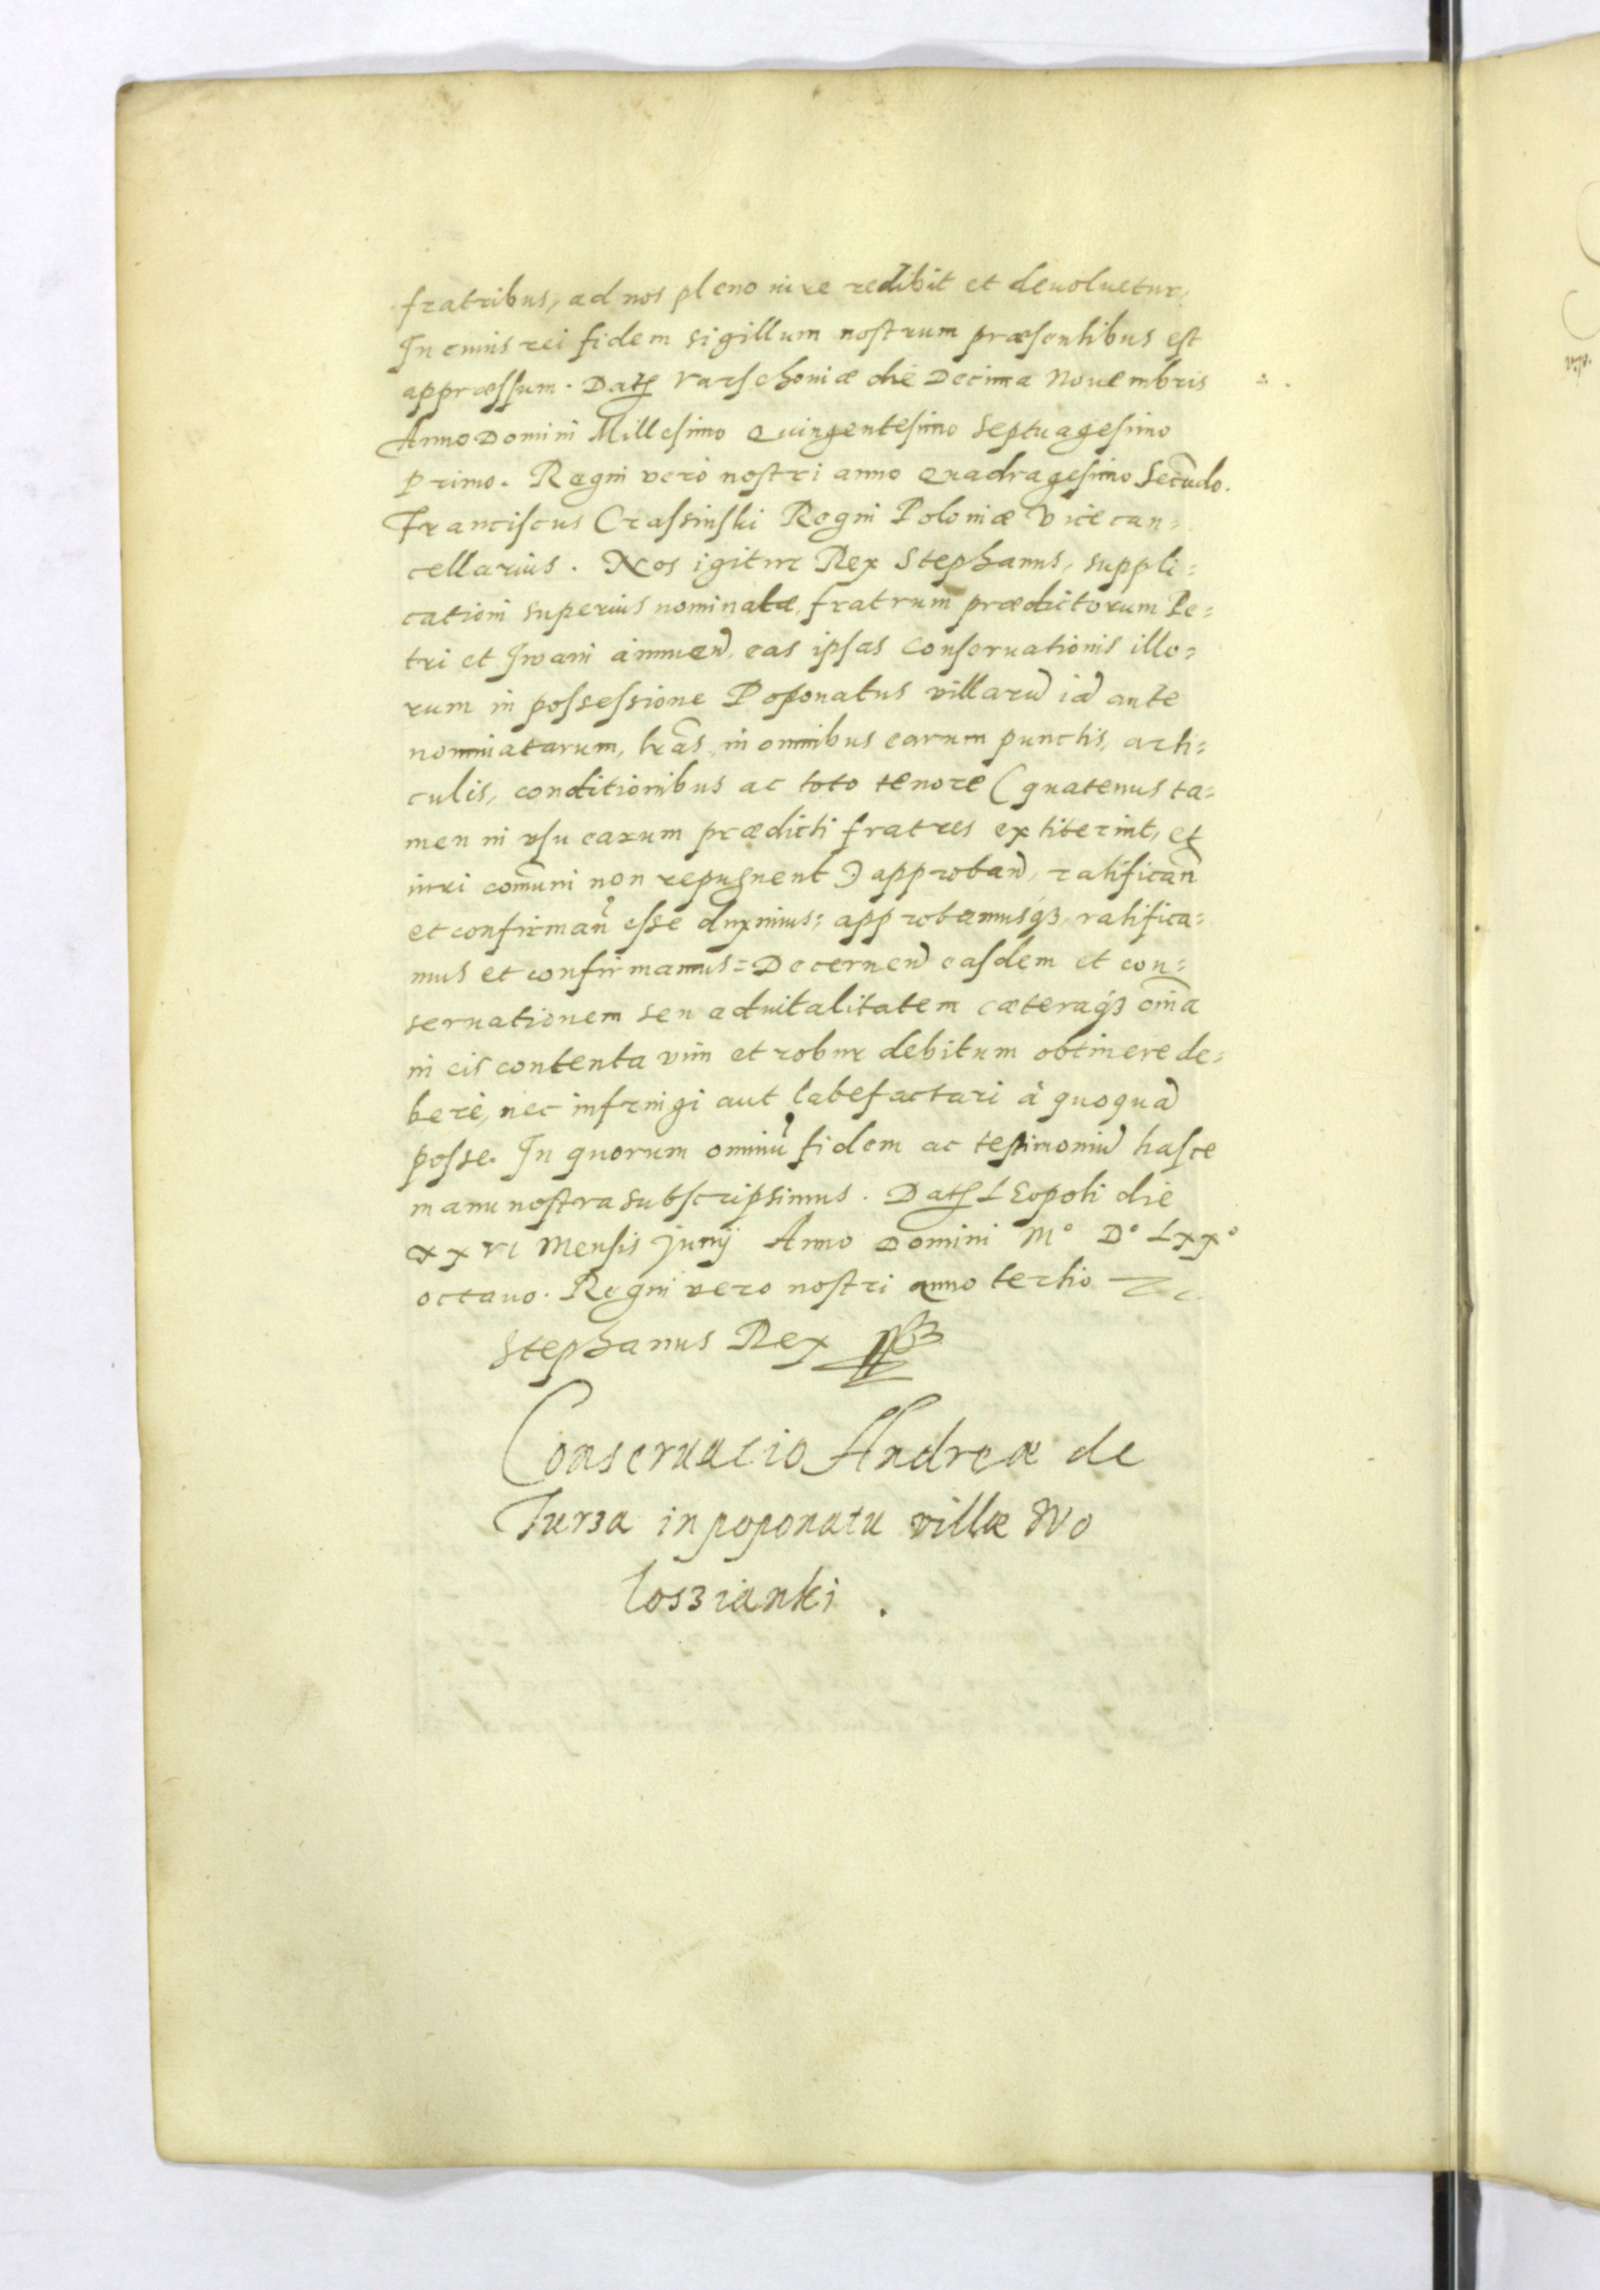 fratribus, ad nos pleno iure redibit et deuoluetur,
In cuius rei fidem sigillum nostrum præsentibus est
appræssum. Dat̃ Varschoniæ die Decima Nouembris
Anno Domini Millesimo Quingentesimo Septuagesimo
primo. Regni verò nostri anno Quadragesimo Secũdo.
Franciscus Crassinski Regni Poloniæ Vicecan=
cellarius. Nos igitur Rex Stephanus, suppli=
cationi superius nominatæ, fratrum prædictorum Pe=
tri et Iwani annuend̃, eas ipsas conseruationis illo=
rum in possessione Poponatus villarũ iã ante
nominatarum, lr̃as, in omnibus earum punctis, arti=
culis, conditionibus ac toto tenore (quatenus ta=
men in vsu earum prædicti fratres extiterint, et
iuri com̃uni non repugnent) approband̃, ratifican̄
et confirman̄ esse duximus: approbamusq3 ratifica=
mus et confirmamus= Decernend̃ easdem et con=
seruationem seu aduitalitatem cæteraq3 om̃ia
in eis contenta vim et robur debitum obtinere de=
bere, nec infringi aut labefactari à quoquã
posse. In quorum omniũ fidem ac testimoniũ hasce
manu nostra subscripsimus. Dat̃ LEopoli die
xxVI Mensis Junij Anno Domini M° D° Lxx°
octauo. Regni vero nostri anno tertio
Stephanus Rex
Conseruacio Andreæ de
Turza in poponatu villæ Wo
loszianki.